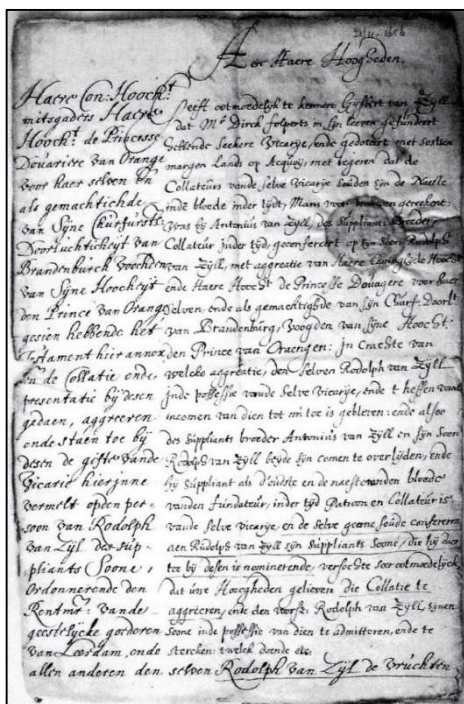 30/11-1656
Aen Haere Hoogheden.
Haere Con: Hoocht.
mitsgaders Haere
Hoocht. de Princesse
Douariere van Orange
voor haer selven en
als gemachtichde
van Sijne Churfurstl.
Doorluchticheyt van
Brandenburch voochden
van Sijne Hoocheyt
den Prince van Orange
gesien hebbende het
Testament hier annex
en de Collatie ende
presentatie bij desen
gedaen, aggreeren
ende staen toe bij
desen de gifte vande
Vicarie hierinne
vermelt op den per-
soon van Rodolph
van Zijl des sup-
pliants Soone,
Ordonnerende den
Rentmr. vande
geestelijcke goederen
van Leerdam, ende
allen anderen den selven Rodolph van Zijl de vruchten
Geeft ootmoedelijck te kennen Gijsbert van Zijll
dat Mr. Dirck folperts in sijn leven gefundeert
hebbende seekere Vicarije, ende gedoteert met sestien
margen Lands op Acquoj, met begeren dat de
Collateurs vande selve Vicarije souden sijn de Naeste
inde bloede inder tijdt, Mans voor vrouwen gerekent:
Was bij Antonius van Zijll, des Suppliants Broeder,
Collateur inder tijd, geconfereert op sijn Soon Rodolph
van Zijll, met aggreatie van Haere Coninglijcke Hoocht.
ende Haere Hoocht. de Princesse Douagere voor haer
selven, ende als gemachtigde van sijn Churf. Doorl.
van Brandenburg, Voogden van sijne Hoocht.
den Prince van Oraengen: in Crachte van
welcke aggreatie, den selven Rodolph van Zijll
inde possessie vande selve Vicarije, ende t heffen vant
incomen van dien tot nu toe is gebleven: ende alsoo
des Suppliants broeder Antonius van Zijll en sijn Soon
Rodolph van Zijll beyde sijn comen te overlijden, ende
hij Suppliant als d'oudste en de naeste vanden bloede
vanden fundateur, inder tijd Patroon en Collateur is
vande selve Vicarije, en de selve geerne soude confereren
aen Rudolph van Zijll sijn Suppliants Soone, die hij daer
toe bij desen is nominerende, versochte seer ootmoedelijck,
dat uwe Hoogheden gelieven die Collatie te
aggreeren, ende den voorsz. Rodolph van Zijll, sijnen
Soone inde possessie van dien te admitteren, ende te
stercken: twelck doende etc.